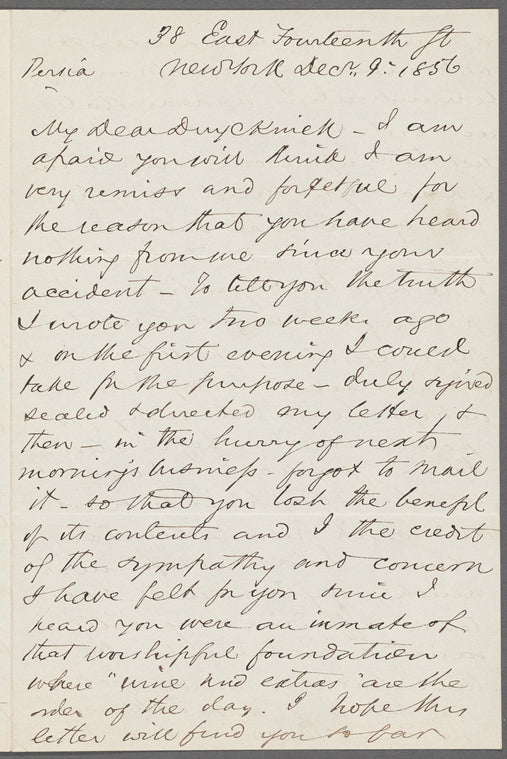 38 East Fourteenth St
Persia New York Decr. 9: 1856
My Dear Duyckinck - I am
afraid you will think I am
very remiss and forgetful for
the reason that you have heard
nothing from me since your
accident - To tell you the truth
I wrote you two weeks ago
& on the first evening I could
take for the purpose - duly signed
sealed & directed my letter, &
then - in the hurry of next
morning's business - forgot to mail
it - so that you lost the benefit
of its contents and I the credit
of the sympathy and concern
I have felt for you since I
heard you were an inmate of
that worshipful foundation
where "wine and extras" are the
order of the day. I hope this
letter will find you so far